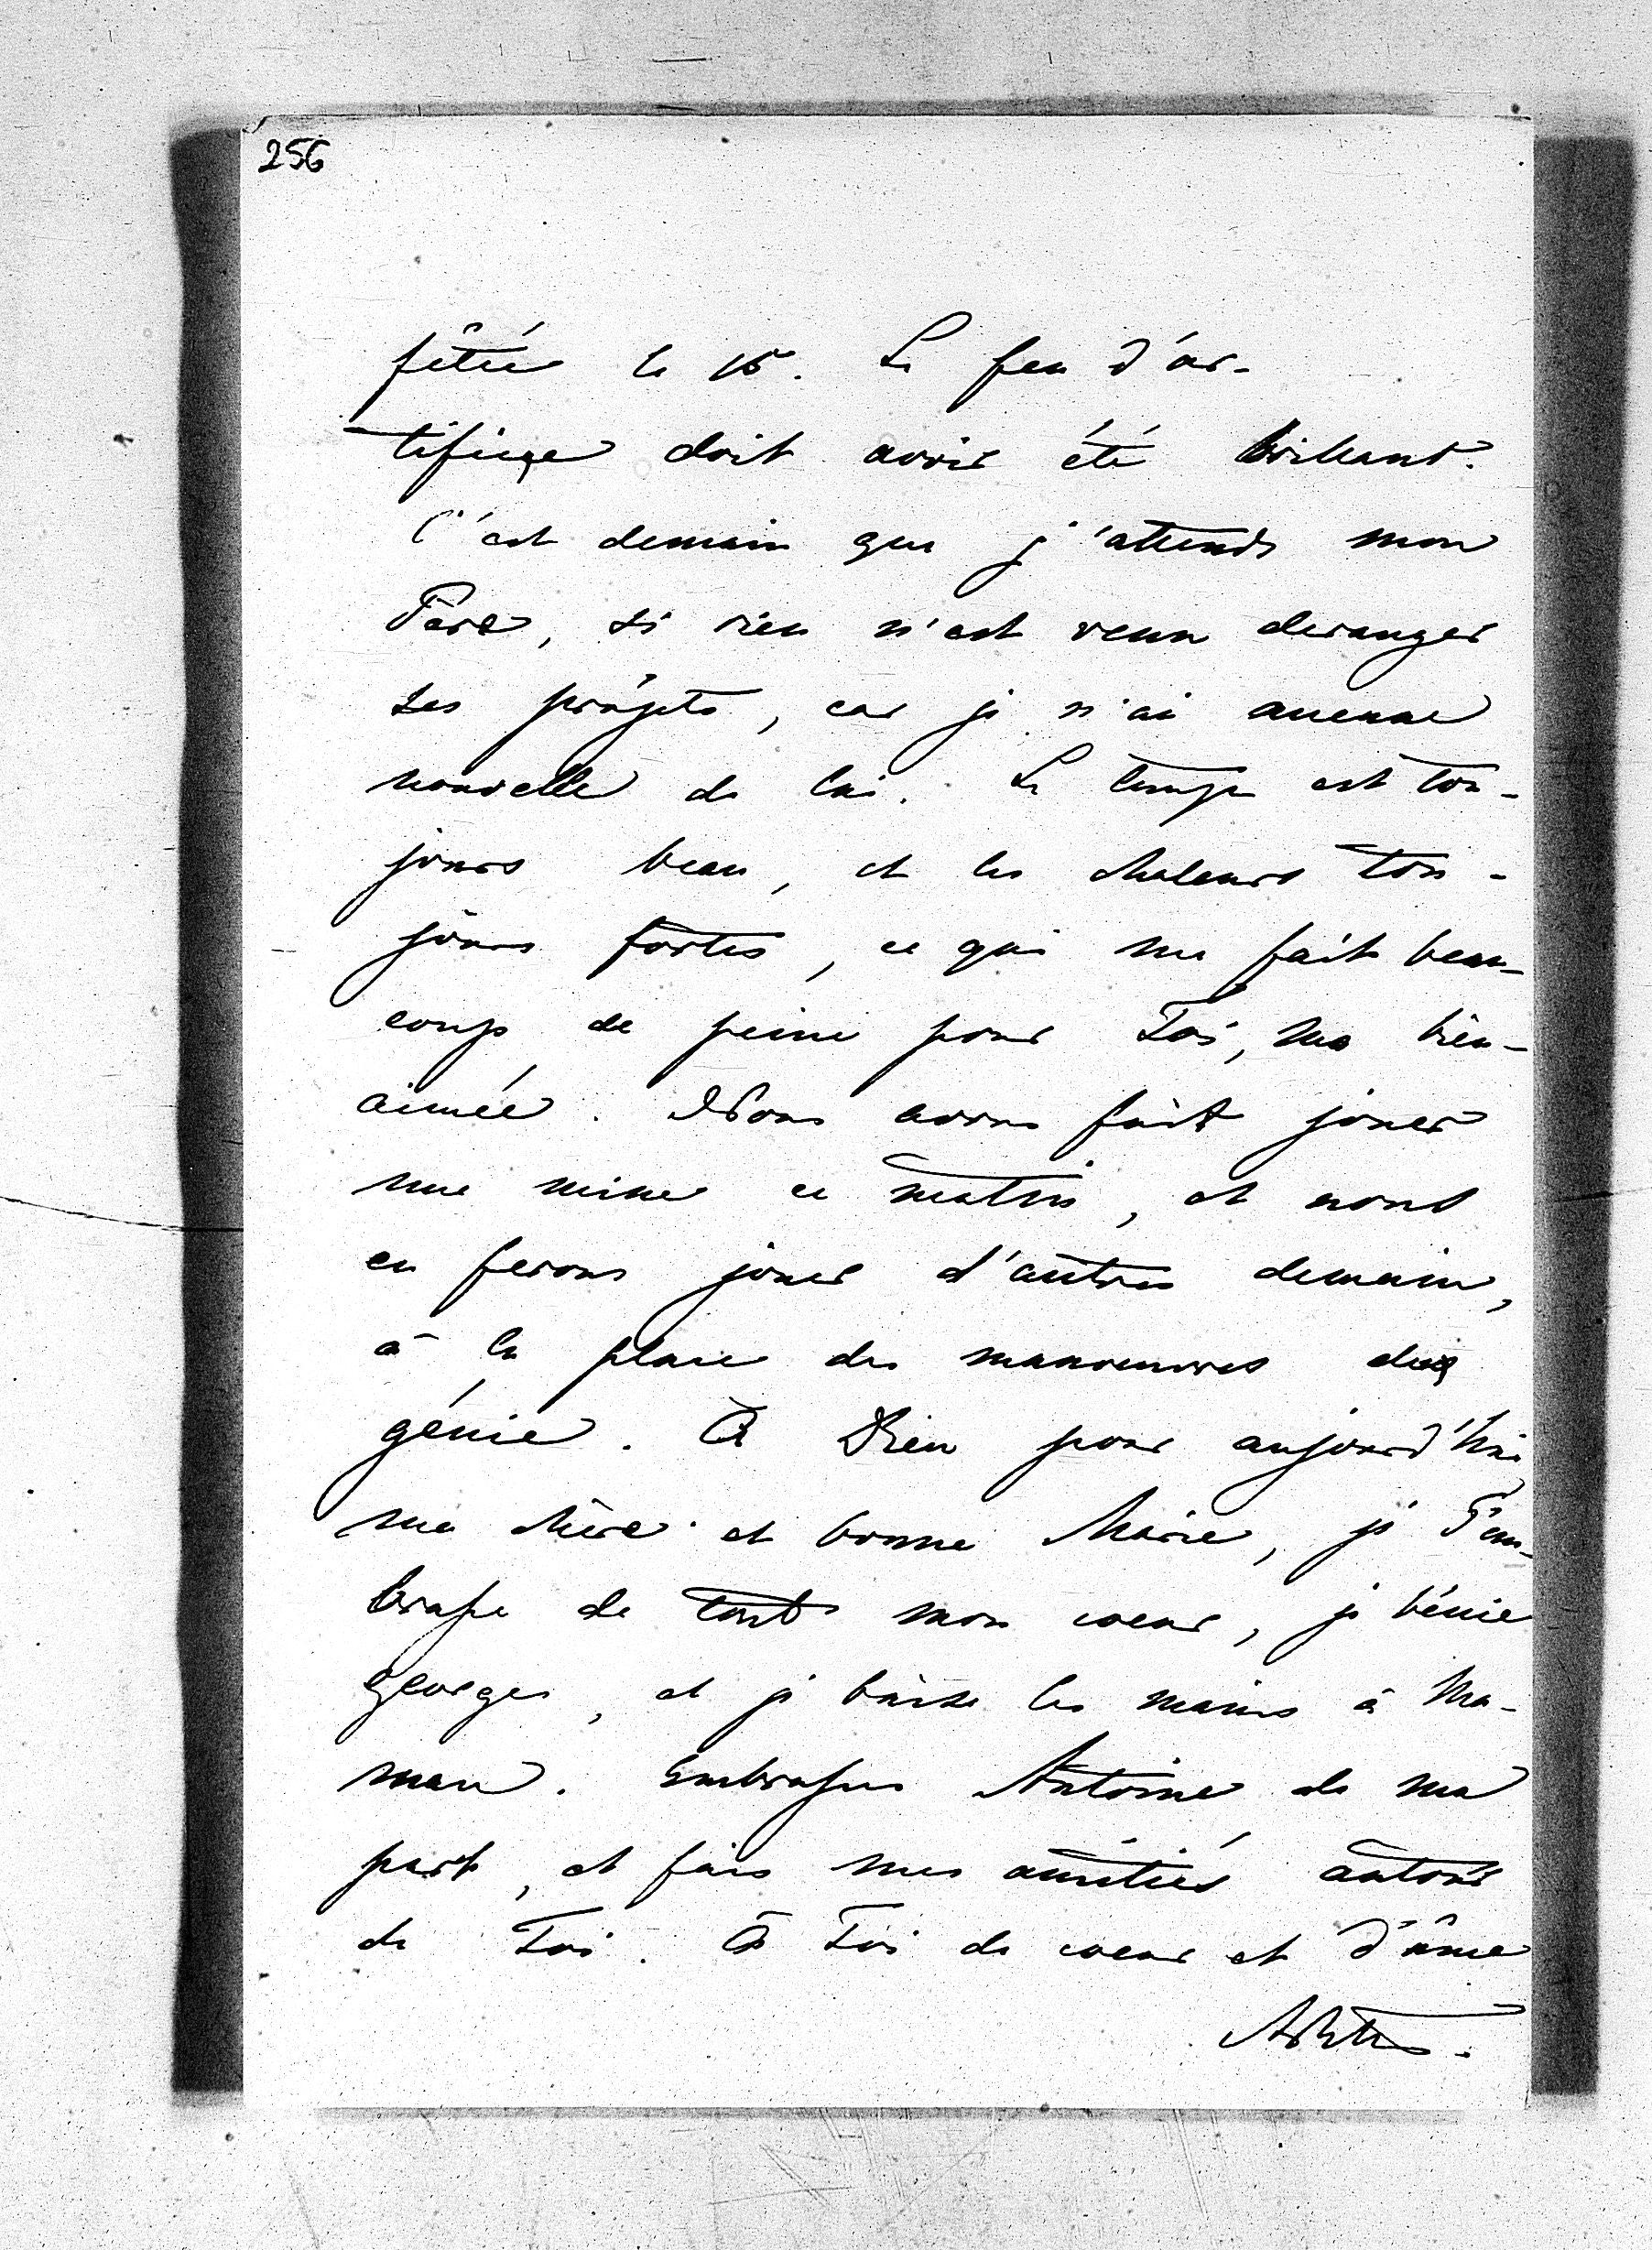 256
fêtée le 15. Le feu d'ar-
tifice doit avoir été brillant.
C'est demain que j'attends mon
Père, si rien n'est venu deranger
ses projets, car je n'ai aucune
nouvelle de lui. Le temps est tou-
jours beau, et les chaleurs tou-
jours fortes, ce qui me fait beau-
coup de peine pour Toi, ma bien-
aimée. Nous avons fait jouer
une mine ce matin, et nous
en ferons jouer d'autres demain,
à la place des manoeuvres de
génie. A Dieu pour aujourd'hui
ma chère et bonne Marie, je T'em-
brasse de tout mon coeur, je bénie
Georges, et je baise les mains à Ma-
man. Embrasses Antoine de ma
part, et fais mes amitiés autour
de Toi. A Toi de coeur et d'âme